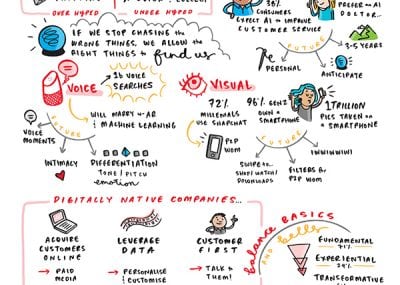 OVER HYPED
UNDER HYPED
CONSUMERS
EXPECT AI TO IMPROVE
CUSTOMER SERVICE
PREFER AN AI
DOCTOR...
FUTURE
PERSONAL
ANTICIPATE
3-5 YEARS
IF WE STOP CHASING THE
WRONG THINGS, WE ALLOW THE
RIGHT THINGS TO find us
VOICE
1B VOICE
SEARCHES
WILL MARRY W/ AR
& MACHINE LEARNING
FUTURE
VOICE
MOMENTS
INTIMACY
DIFFERENTIATION
TONE / PITCH
emotion
VISUAL
72%
MILLENNIALS
USE SNAPCHAT
P2P
WOM
96% GEN Z
OWN A
SMARTPHONE
1 TRILLION
PICS TAKEN ON A
SMARTPHONE
FUTURE
IWWIWWIWI
FILTERS for
P2P WOM
DIGITALLY NATIVE COMPANIES...
ACQUIRE
CUSTOMERS
ONLINE
→ PAID
MEDIA
LEVERAGE
DATA
→ PERSONALISE
& CUSTOMISE
CUSTOMER
FIRST
→ TALK to
THEM!
balance BASICS
and better
FUNDAMENTAL
71%
EXPERIENTIAL
29%
TRANSFORMATIVE